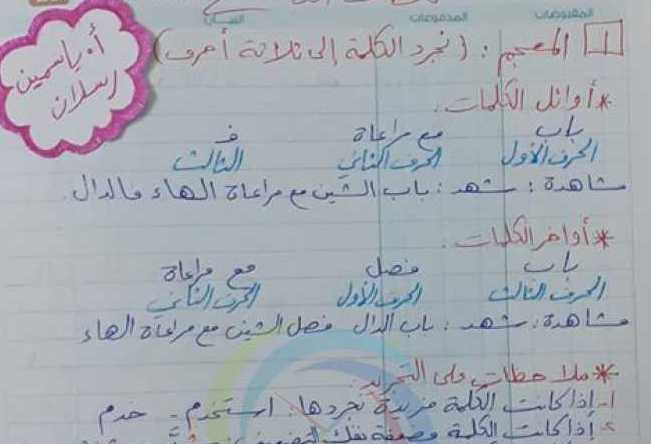 المقبوضات
المدفوعات
البيان
أ. ياسمين
رسلان
1 المعجم: (نجرد الكلمة إلى ثلاثة أحرف)
* أوائل الكلمات.
باب مع مراعاة ف
الحرف الأول الحرف الثاني الثالث
مشاهدة: شهد: باب الشين مع مراعاة الهاء فالدال.
* أواخر الكلمات.
باب فصل مع مراعاة
الحرف الثالث الحرف الأول الحرف الثاني
مشاهدة: شهد: باب الدال فصل الشين مع مراعاة الهاء
* ملاحظات على التجريد:
1- إذا كانت الكلمة مزيدة نجردها: استخدم - خدم
2- إذا كانت الكلمة مضعفة نفك التضعيف